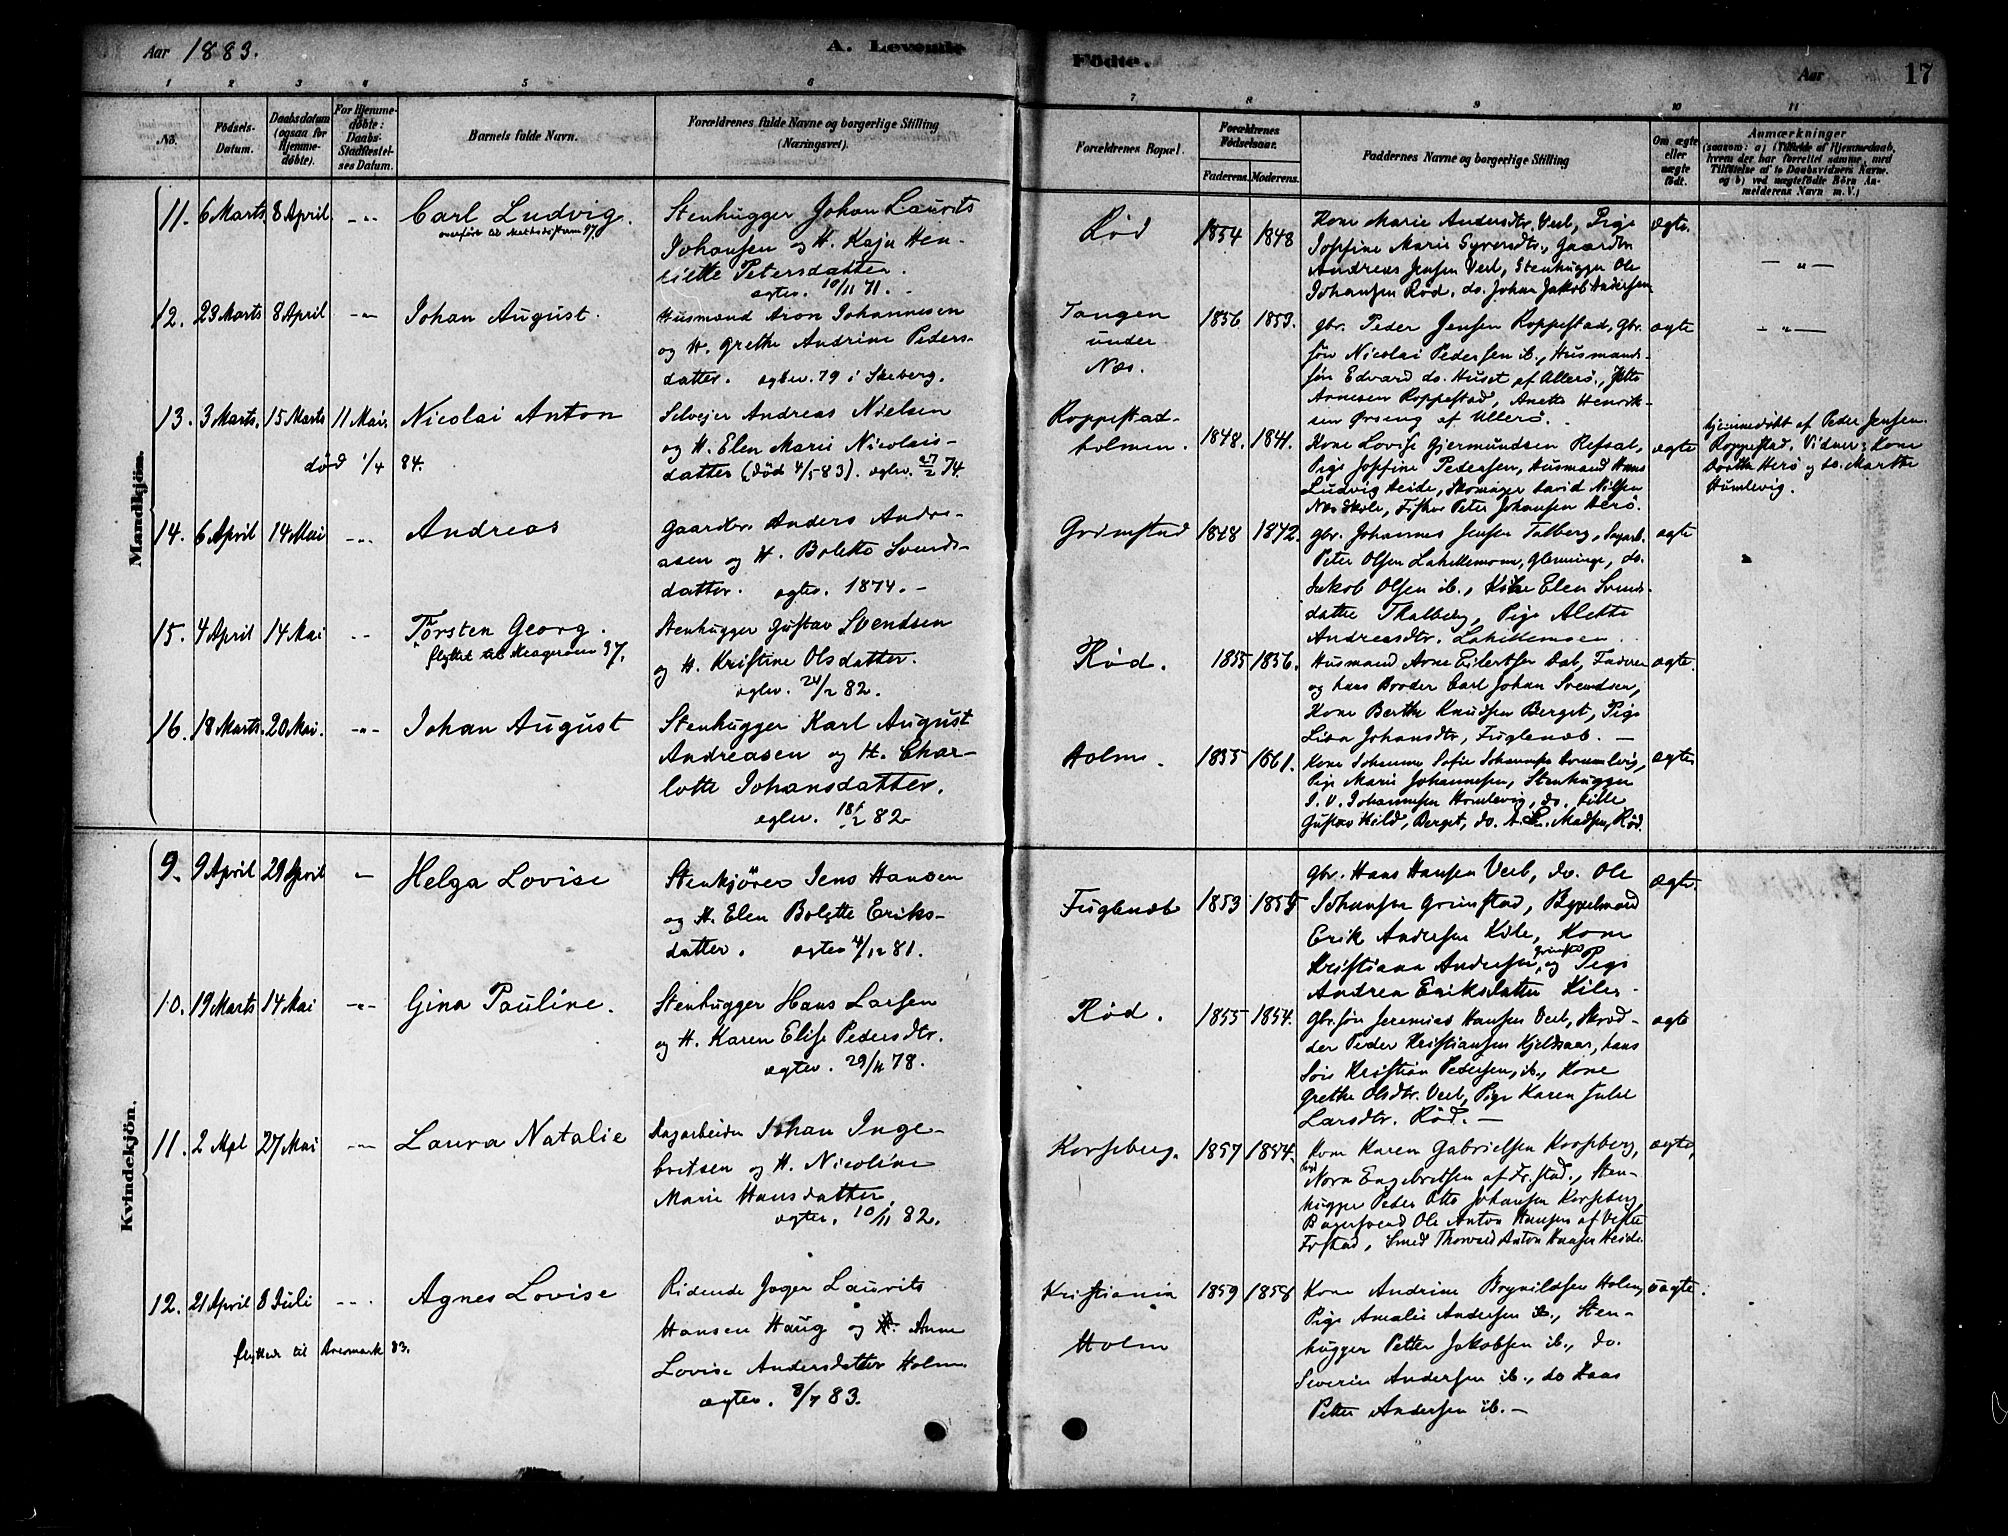 Aar 1883.
A. Levende
Födte.
Aar
17
1 2 3 4 5 6 7 8 9 10 11
No.
Födsels-
Datum.
Daabsdatum
(ogsaa for
Hjemme-
döbte).
For Hjemme-
døbte:
Daabs-
Stadfæstel-
ses Datum.
Barnets fulde Navn.
Forældrenes fulde Navne og borgerlige Stilling
(Næringsvei).
Forældrenes Bopæl.
Forældrenes
Födselsaar.
Faderens. Moderens.
Faddernes Navne og borgerlige Stilling
Om ægte
eller
uægte
födt.
Anmærkninger
(saasom: a) Tilfælde af Hjemmedaab,
hvem der har forrettet samme, med
Tilföielse af to Daabsvidners Navne.
og b) ved uægtefödte Börn An-
melderens Navn m. V.)
Mandkjön.
11. 6 Marts 8 April -"- Carl Ludvig.
Stenhugger Johan Laurits
Johansen og H. Kaja Hen-
riette Petersdatter.
ægtev. 10/11 71.
Rød
1854 1848
Kone Marie Andersdtr. Veel, Pige
Josefine Marie Syversdtr., Gaardbr.
Andreas Jensen Veel, Stenhugger Ole
Johansen Rød, do. Johan Jakob Andersen
ægte.
-"-
12. 23 Marts 8 April -"- Johan August.
Husmand Aron Johannesen
og H. Grethe Andrine Peders-
datter. ægtev. 79 i Skeberg.
Tangen
under
Næs.
1856 1853.
gbr. Peder Jensen Roppestad, gbr.
søn Nicolai Pedersen ib., Husmands-
søn Edvard do. Huset af Allerø,
Arnesen Roppestad, Anette Henrik-
sen Ørseng af Ullerø.
ægte
-"-
13. 3 Marts. 15 Marts 11 Mai. Nicolai Anton
død 1/4 84.
Selvejer Andreas Nielsen
og H. Elen Marie Nicolais-
datter (død 4/5 83). ægtev. 27/2 74.
Roppestad-
holmen.
1848. 1841.
Kone Lovise Gjermundsen Refsal,
Pige Josefine Pedersen, Husmand Hans
Ludvig Heide, Skomager David Nilsen
Næs Skole, Fisker Peter Johansen Herø.
ægte
Hjemmedøbt af Peder Jensen
Roppestad. Vidner: Kone
Dorthe Herø og do. Marthe
Humlevig.
14. 6 April 14 Mai -"- Andreas
Gaardbr. Anders Andre-
asen og H. Bolette Svends-
datter. ægtev. 1874. -
Grimstad
1848 1842.
gbr. Johannes Jensen Talberg, Sagarb.
Peter Olsen Lahellemoen, Glemminge, do.
Jakob Olsen ib., Kone Elen Svends-
datter Thalberg, Pige Alette
Andreasdtr. Lahellemoen.
ægte
15. 4 April 14 Mai -"- Torsten Georg.
Stenhugger Gustav Svendsen
og H. Kristine Olsdatter.
ægtev. 24/2 82.
Rød.
1855 1856.
Husmand Arne Eilertsen Dal, Faderen
og hans Broder Carl Johan Svendsen,
Kone Berthe Knudsen Berget, Pige
Lisa Johansdtr, Fuglenæb. -
ægte.
16. 18 Marts. 20 Mai. -"- Johan August
Stenhugger Karl August
Andreasen og H. Char-
lotte Johansdatter.
ægtev. 18/2 82
Holm.
1855 1861.
Kone Johanne Sofie Johannesen Humlevig,
Pige Marie Johannesen, Stenhugger
J. V. Johannesen Homlevig, do. Kille
Gustav Kild, Berget, do. A. L. Madsen, Rød.
ægte
Kvindekjön.
9. 9 April 29 April " Helga Lovise
Stenkjører Jens Hansen
og H. Elen Bolette Eriks-
datter. ægtev 4/12 81.
Fuglenæb
1853 1855
gbr. Hans Hansen Veel, do. Ole
Johansen Grimstad, Bygselmand
Erik Andersen Kile, Kone
Kristiana Andersen Grimstad, og Pige
Andrea Eriksdatter Kile.
ægte.
10. 19 Marts 14 Mai -"- Gina Pauline.
Stenhugger Hans Larsen
og H. Karen Elise Pedersdtr.
ægtev. 29/11 78.
Rød.
1855 1854.
Gbr.søn Jeremias Hansen Veel, Skræd-
der Peder Kristiansen Kjelsaas, hans
Søn Kristian Pedersen, ib., Kone
Grethe Olsdtr. Veel, Pige Karen Julie
Larsdtr. Rød. -
ægte
11. 2 27 Mai -"- Laura Natalie
Dagarbeider Johan Inge-
britsen og H. Nicoline
Marie Hansdatter.
ægtev. 10/11 82.
Korseberg.
1857 1854.
Kone Karen Gabrielsen Korseberg,
Pige Nora Engebretsen af Fr.stad., Sten-
hugger Peder Otto Johansen Korseberg,
Bagersvend Ole Anton Hansen af Vestre
Frstad, Smed Thorvald Anton Hansen Heide.
ægte,
12. 21 April 8 Juli -"- Agnes Lovise
flyttede til Aremark 83.
Ridende Jæger Laurits
Hansen Haug og H. Anne
Lovise Andersdatter Holm.
ægtev. 8/7 83.
Kristiania
Holm
1859 1858
Kone Andrine Brynildsen Holm,
Pige Amalie Andersen ib., Sten-
hugger Petter Jakobsen ib., do.
Severin Andersen ib., do Hans
Petter Andersen ib. -
uægte.